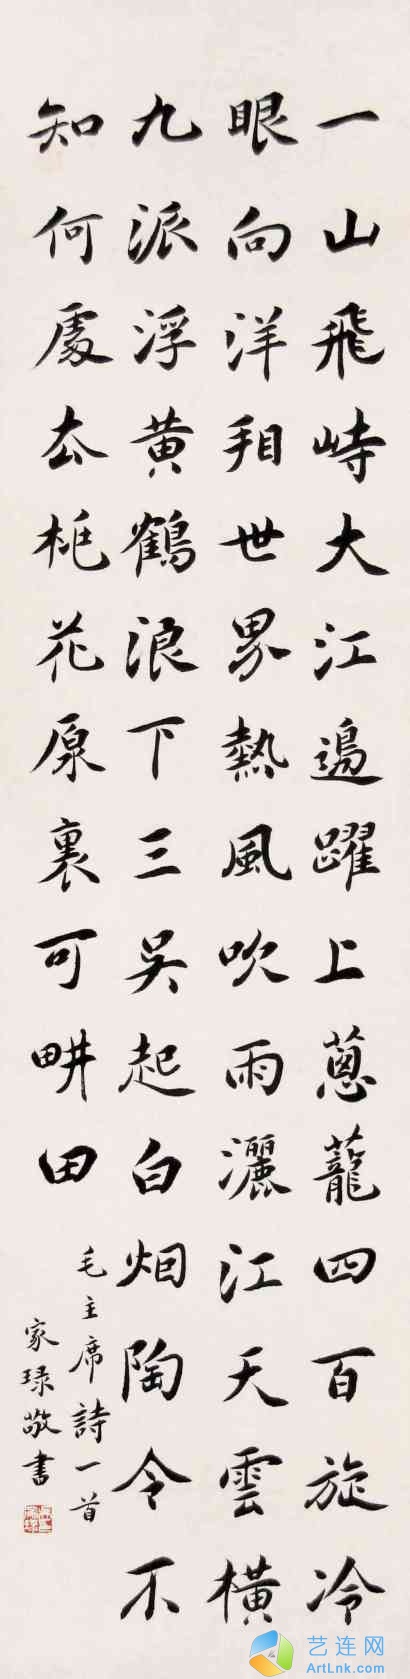 一山飛峙大江邊躍上蔥蘢四百旋冷
眼向洋看世界熱風吹雨灑江天雲橫
九派浮黃鶴浪下三吳起白烟陶令不
知何處去桃花原裏可畊田
毛主席詩一首
家琭敬書
艺连网
ArtLnk.com